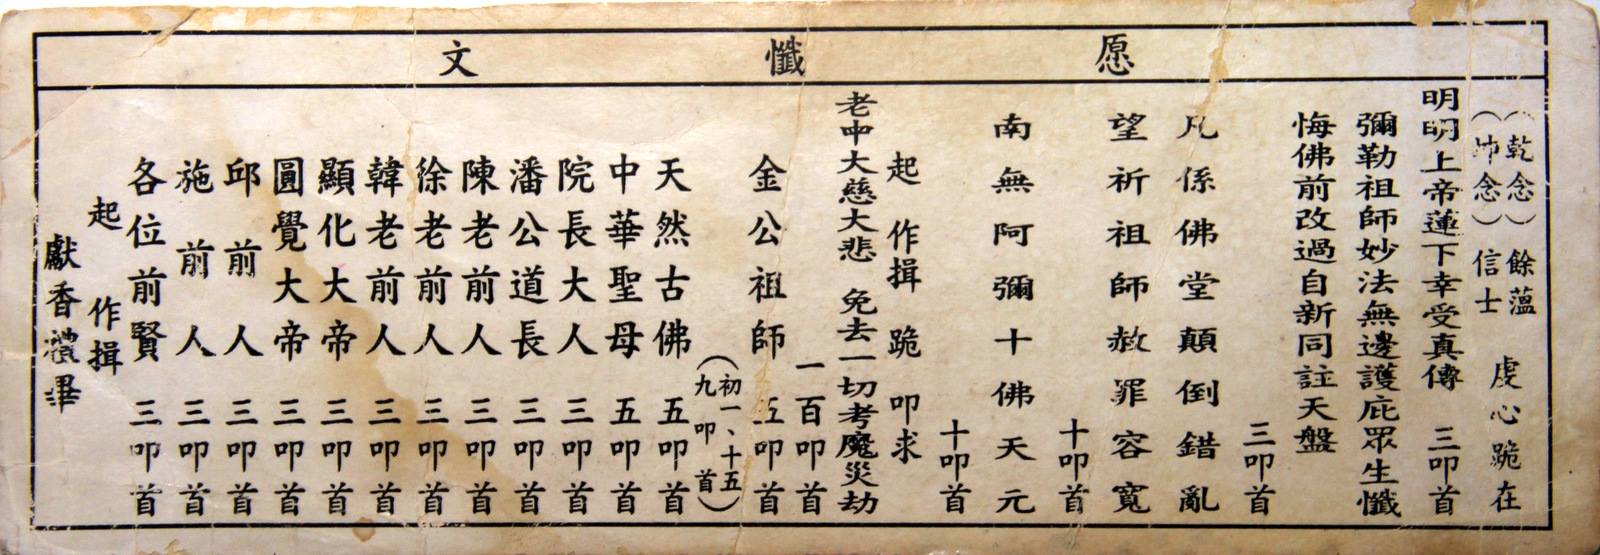 愿懺文
（乾念）餘蘊
（坤念）信士
虔心跪在
明明上帝蓮下幸受真傳 三叩首
彌勒祖師妙法無邊護庇眾生懺
悔佛前改過自新同註天盤
三叩首
凡係佛堂顛倒錯亂
望祈祖師赦罪容寬
十叩首
南無阿彌十佛天元
十叩首
起 作揖 跪 叩求
老中大慈大悲 免去一切考魔災劫
一百叩首
金公祖師 五叩首
（初一、十五）
（九叩首）
天然古佛 五叩首
中華聖母 五叩首
院長大人 三叩首
潘公道長 三叩首
陳老前人 三叩首
徐老前人 三叩首
韓老前人 三叩首
顯化大帝 三叩首
圓覺大帝 三叩首
邱前人 三叩首
施前人 三叩首
各位前賢 三叩首
起 作揖
獻香禮畢